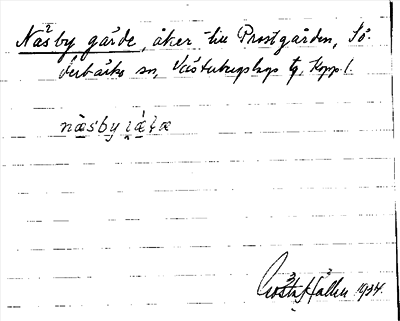 Näsby gärde, åker till Prostgården, Sö-
derbärke sn, Västerbergslags tg. Kopp. l.
näsby
Gösta Hallén 1934.